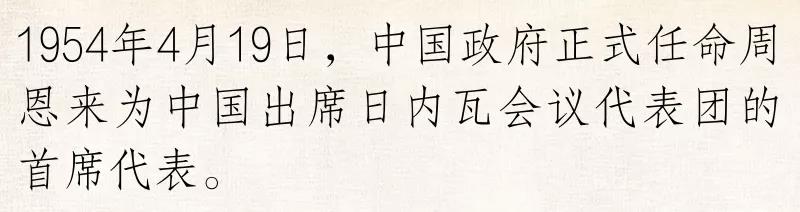 1954年4月19日，中国政府正式任命周
恩来为中国出席日内瓦会议代表团的
首席代表。